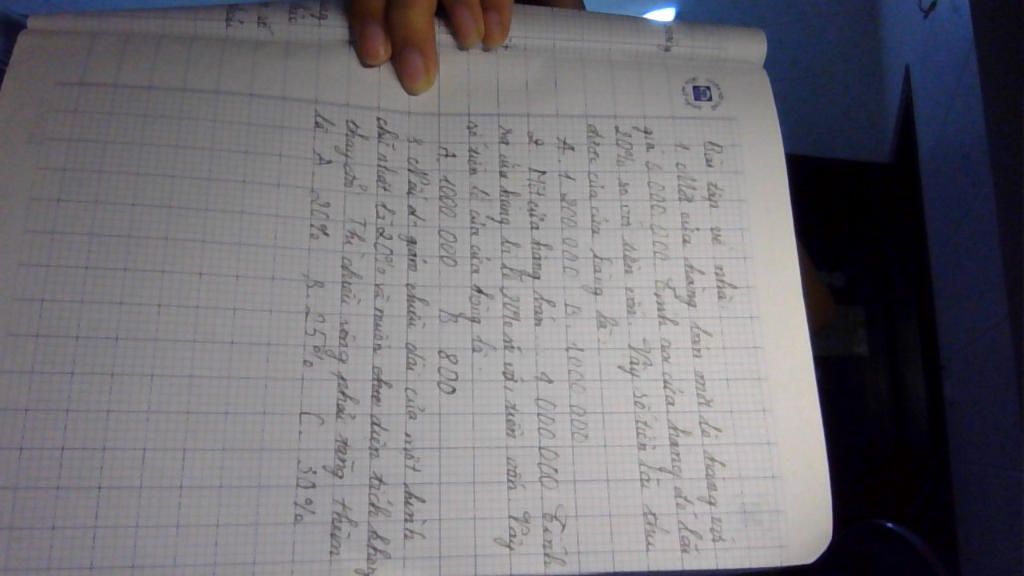 Bài tập về nhà
1. Một cửa hàng bán một lô hàng với
giá 6.000.000. Tính ra cửa hàng đó lãi
20% so với tiền vốn. Vậy số tiền lãi thu
được của cửa hàng là:
A. 1.200.000 B. 1.000.000
2. Một cửa hàng bán 4.000.000 Tính
ra cửa hàng bị lỗ so với tiền vốn Vậy
số tiền lỗ của cửa hàng là
A 1000.000 B 800
3 Nếu giảm chiều dài của một hình
chữ nhật đi 20% và muốn cho diện tích không
chuyển Thì chiều rộng phải tăng thêm
là A 20% B 25% C. 30%